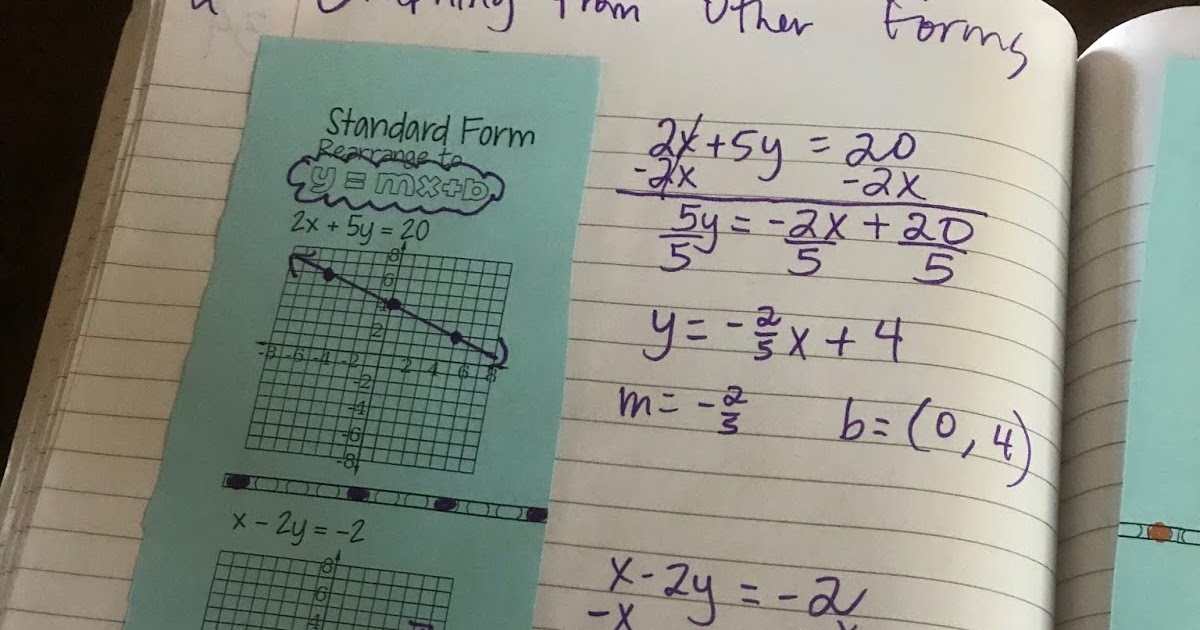 Graphing from Other Forms
Standard Form
Rearrange to
y = mx+b
2x + 5y = 20
8
6
2
-8 -6 -4 -2 2 4 6 8
-2
-4
-6
-8
x - 2y = -2
8
6
4
2x+5y = 20
-2x -2x
5y = -2x + 20
5 5 5
y = - 2/5 x + 4
m = - 2/5 b = (0, 4)
x - 2y = -2
-x